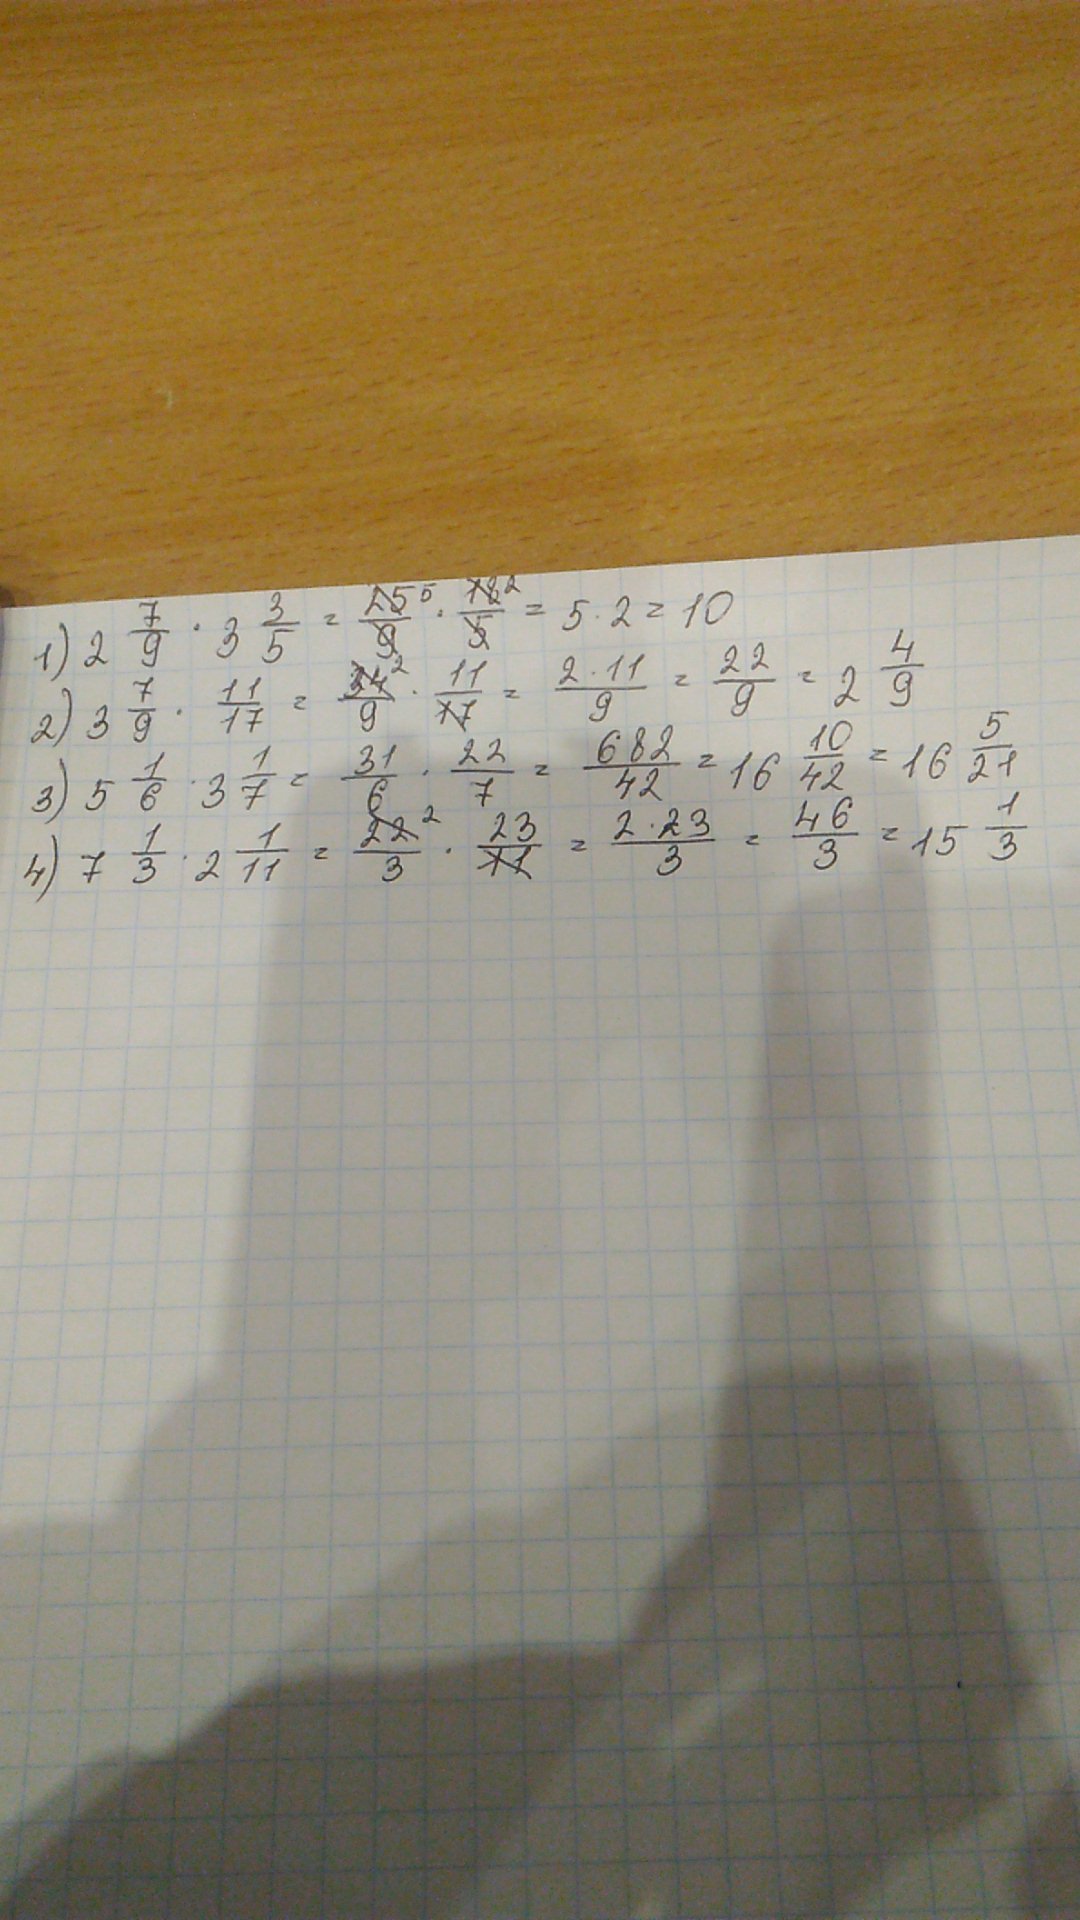 1) 2 7/9 · 3 3/5 = 25 5/9 · 18 2/5 = 5 · 2 = 10
2) 3 7/9 · 11/17 = 34 2/9 · 11/17 = 2·11/9 = 22/9 = 2 4/9
3) 5 1/6 · 3 1/7 = 31/6 · 22/7 = 682/42 = 16 10/42 = 16 5/21
4) 7 1/3 · 2 1/11 = 22 2/3 · 23/11 = 2·23/3 = 46/3 = 15 1/3